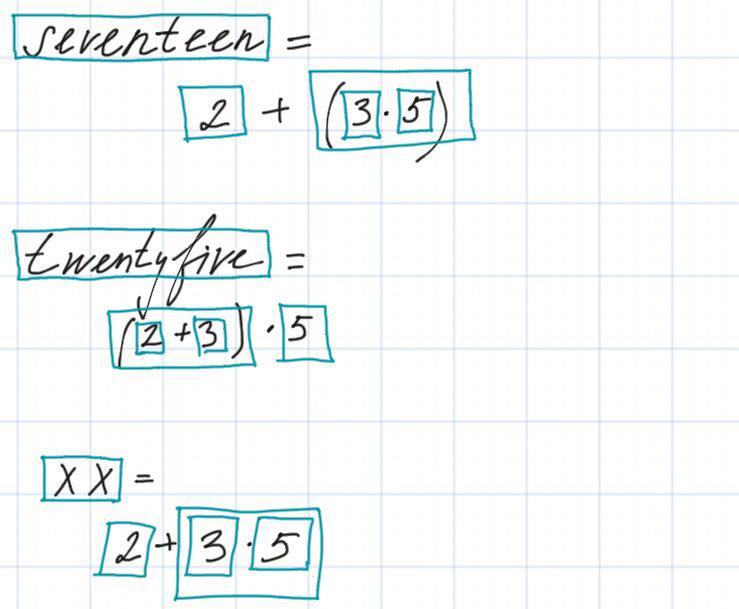 seventeen =
2 + (3 · 5)
twentyfive =
(2 + 3) · 5
XX =
2 + 3 · 5